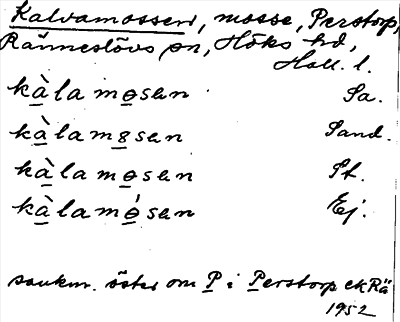 Kalvamossen, mosse, Perstorp,
Ränneslövs sn, Höks hd,
Hall. l.
kàlamosen Sa.
kàlam8sen Sand.
kàlamosen St.
kàlamósen Ej.
sankm. öster om P i Perstorp ek Rä
1952